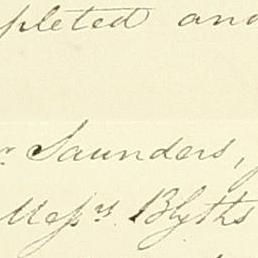 pleted and
r Saunders,
Messrs. Blyths